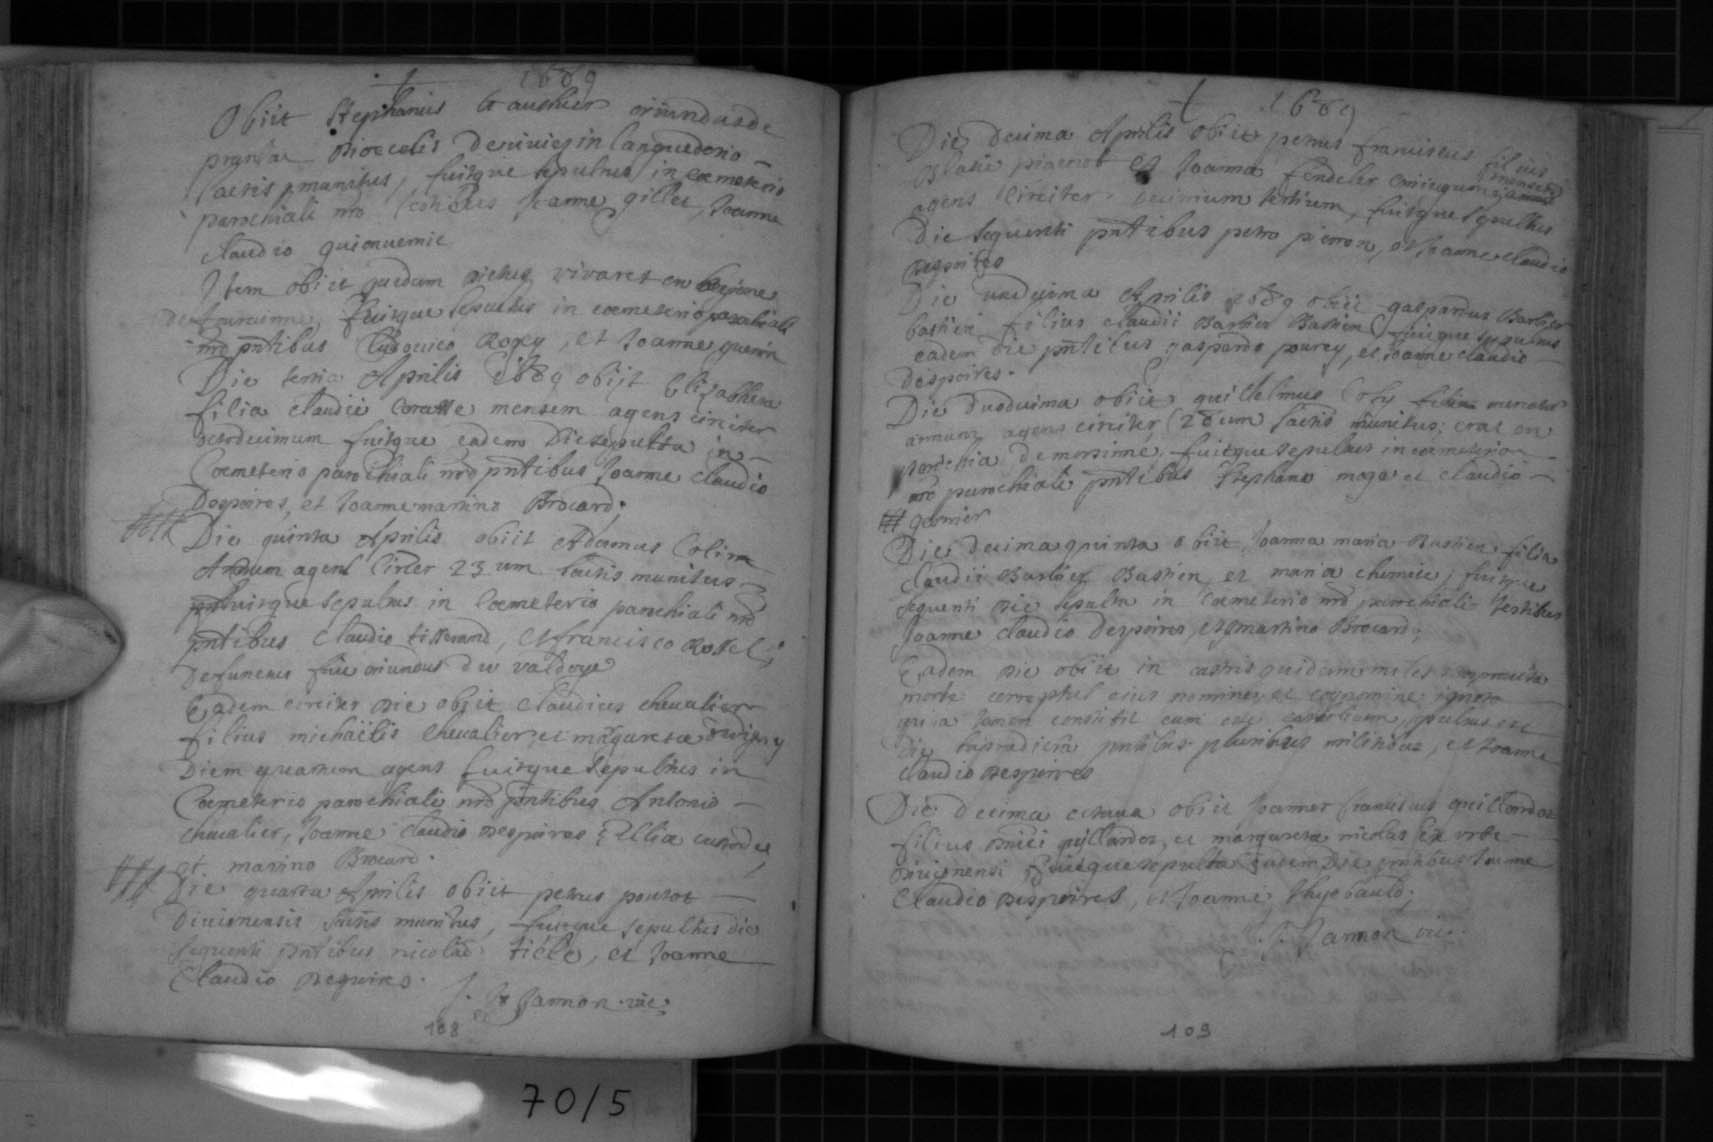 1689
Obiit Stephanus Gauthier oriundus de
Diocesis in languedocio
sacris munitus, fuitque sepultus in coemeterio
parochiali nrō testibus Joanne gillet, Joanne
claudio
Item obiit quidam dictus vivarest en
fuitque sepultus in coemeterio parochiali
nrō pntibus Ludovico Roxy, et Joanne guenin
Die tertia Aprilis 1689 obijt Elisabetha
filia claudii mensem agens circiter
fuitque eadem die sepulta in
Coemeterio parochiali nrō pntibus Joanne claudio
Despoires, et Joanne martino Brocard;
Die quinta Aprilis obiit Adamus Colin
Annum agens circiter 23um sacris munitus
fuitque sepultus in Coemeterio parochiali nrō
pntibus Claudio tisserand, et francisco Rossel;
Defunctus fuit oriundus du valdoye
Eadem circiter die obijt Claudius chevalier
filius michaëlis chevalier et margareta
Diem quartum agens fuitque sepultus in
Coemeterio parochiali nrō pntibus Antonio
chevalier, Joanne claudio Despoires
et martino Brocard.
Die quarta Aprilis obiit petrus pourot
Divionensis sacris munitus, fuitque sepultus die
sequenti pntibus nicolao tiele, et Joanne
Claudio Despoires.
J. Jamon vic:
108
1689
Die decima Aprilis obiit petrus franciscus filius
Blasii et Joanna Coniugum
agens Circiter decimum tertium, mensem fuitque sepultus
Die sequenti pntibus petro pierron, et Joanne claudio
Despoires
Die undecima Aprilis 1689 obiit gaspardus Barbier
bastien filius claudii Barbier Bastien fuitque sepultus
eadem die pntibus gaspardo pourcy, et joanne claudio
despoires.
Die duodecima obiit guillelmus
annum agens circiter 28um sacris munitus; erat en
parochia demorsinne, fuitque sepultus in coemeterio
nrō parochiali pntibus Stephano et claudio
garnier
Die decima quinta obiit Joanna maria Bastien filia
Claudii Barbier Bastien et maria chemite; fuitque
sequenti die sepulta in Coemeterio nrō parochiali testibus
Joanne claudio despoires, et martino Brocard;
Eadem die obiit in castris quidam miles
morte correptus eius nomine et cognomine ignoto
quia tamen constitit eum esse catholicum, sepultus est
Die supradicta pntibus pluribus militibus, et Joanne
claudio Despoires
Die decima octava obiit Joannes franciscus guillardot
filius guillardot, et margareta nicolas ex urbe
fuitque sepultus Eadem Die pntibus Joanne
Claudio Despoires, et Joanne thyebault;
J. Jamon vic.
109
70/5